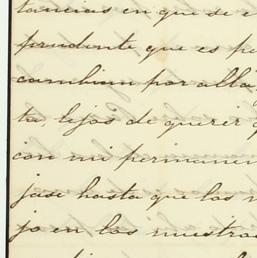 tancias en que se e
prudente que es pe
cambian por allá,
ta, lejos de querer q
con mi permanen
jase hasta que las n
jo en las nuestra